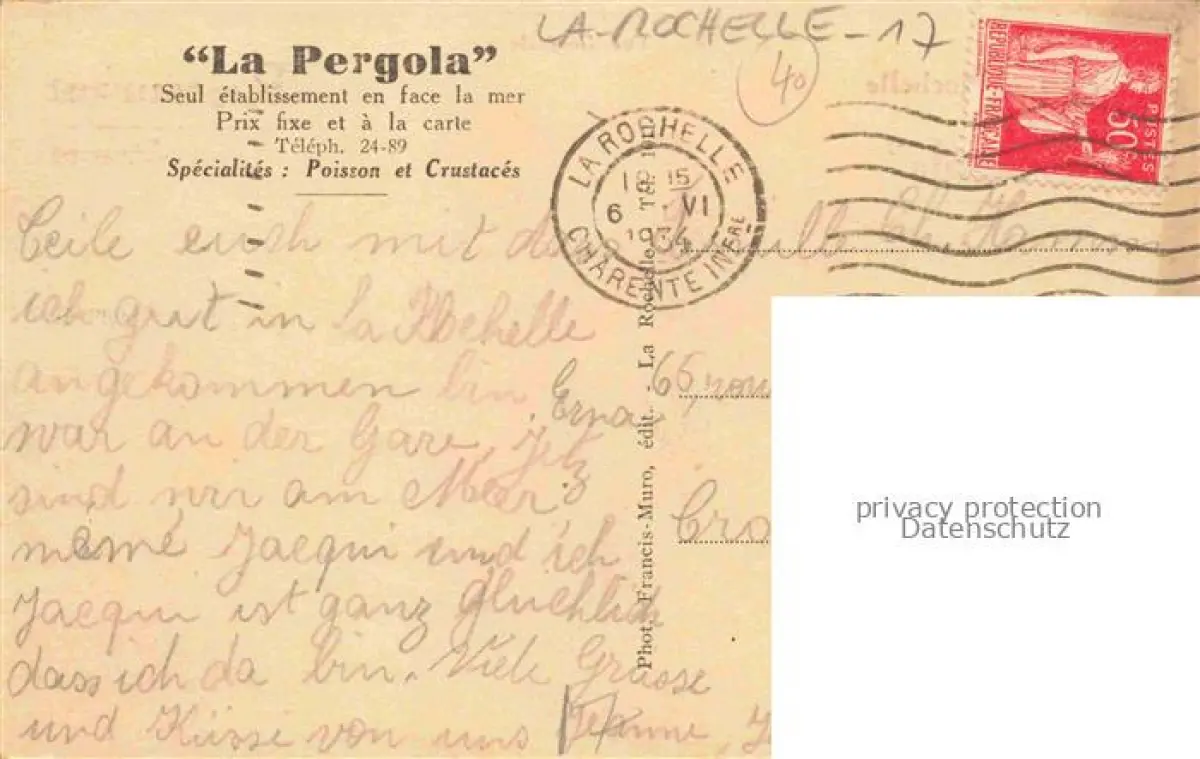 LA-ROCHELLE-17
40
"La Pergola"
Seul établissement en face la mer
Prix fixe et à la carte
Téléph. 24-89
Spécialités : Poisson et Crustacés
POSTES
50
REPUBLIQUE-FRANÇAISE
LA ROCHELLE
15
6 VI
1934
CHARENTE INFRE
Teile euch mit dass
ich gut in La Rochelle
angekommen bin Erna
war an der Gare, Jetz
sind wir am Meer
mémé Jacqui und ich
Jacqui ist ganz glücklich
dass ich da bin. Viele Grüsse
und Küsse von uns Jeanne, J
65,
Phot. Francis-Muro, édit. - La Rochelle - Tél.
privacy protection
Datenschutz